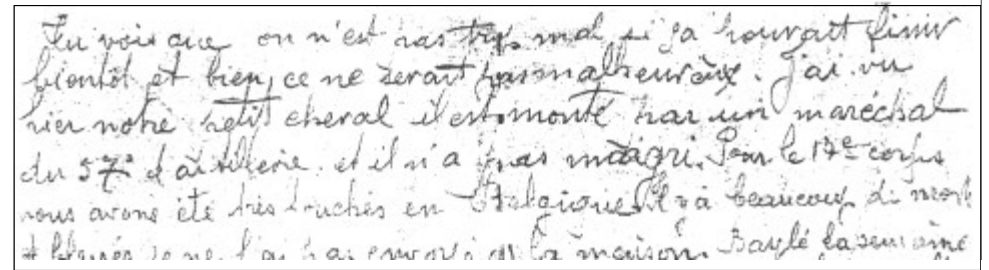 Tu vois que on n'est pas trop mal si ça pouvait finir
bientôt et bien, ce ne serait pas malheureux. J'ai vu
hier notre petit cheval il est monté par un maréchal
du 57e d'artillerie et il n'a pas maigri. Pour le 17e corps
nous avons été très touchés en Belgique Il y a beaucoup de morts
et blessés je ne l'ai pas envoyé à la maison. Baylé la semaine